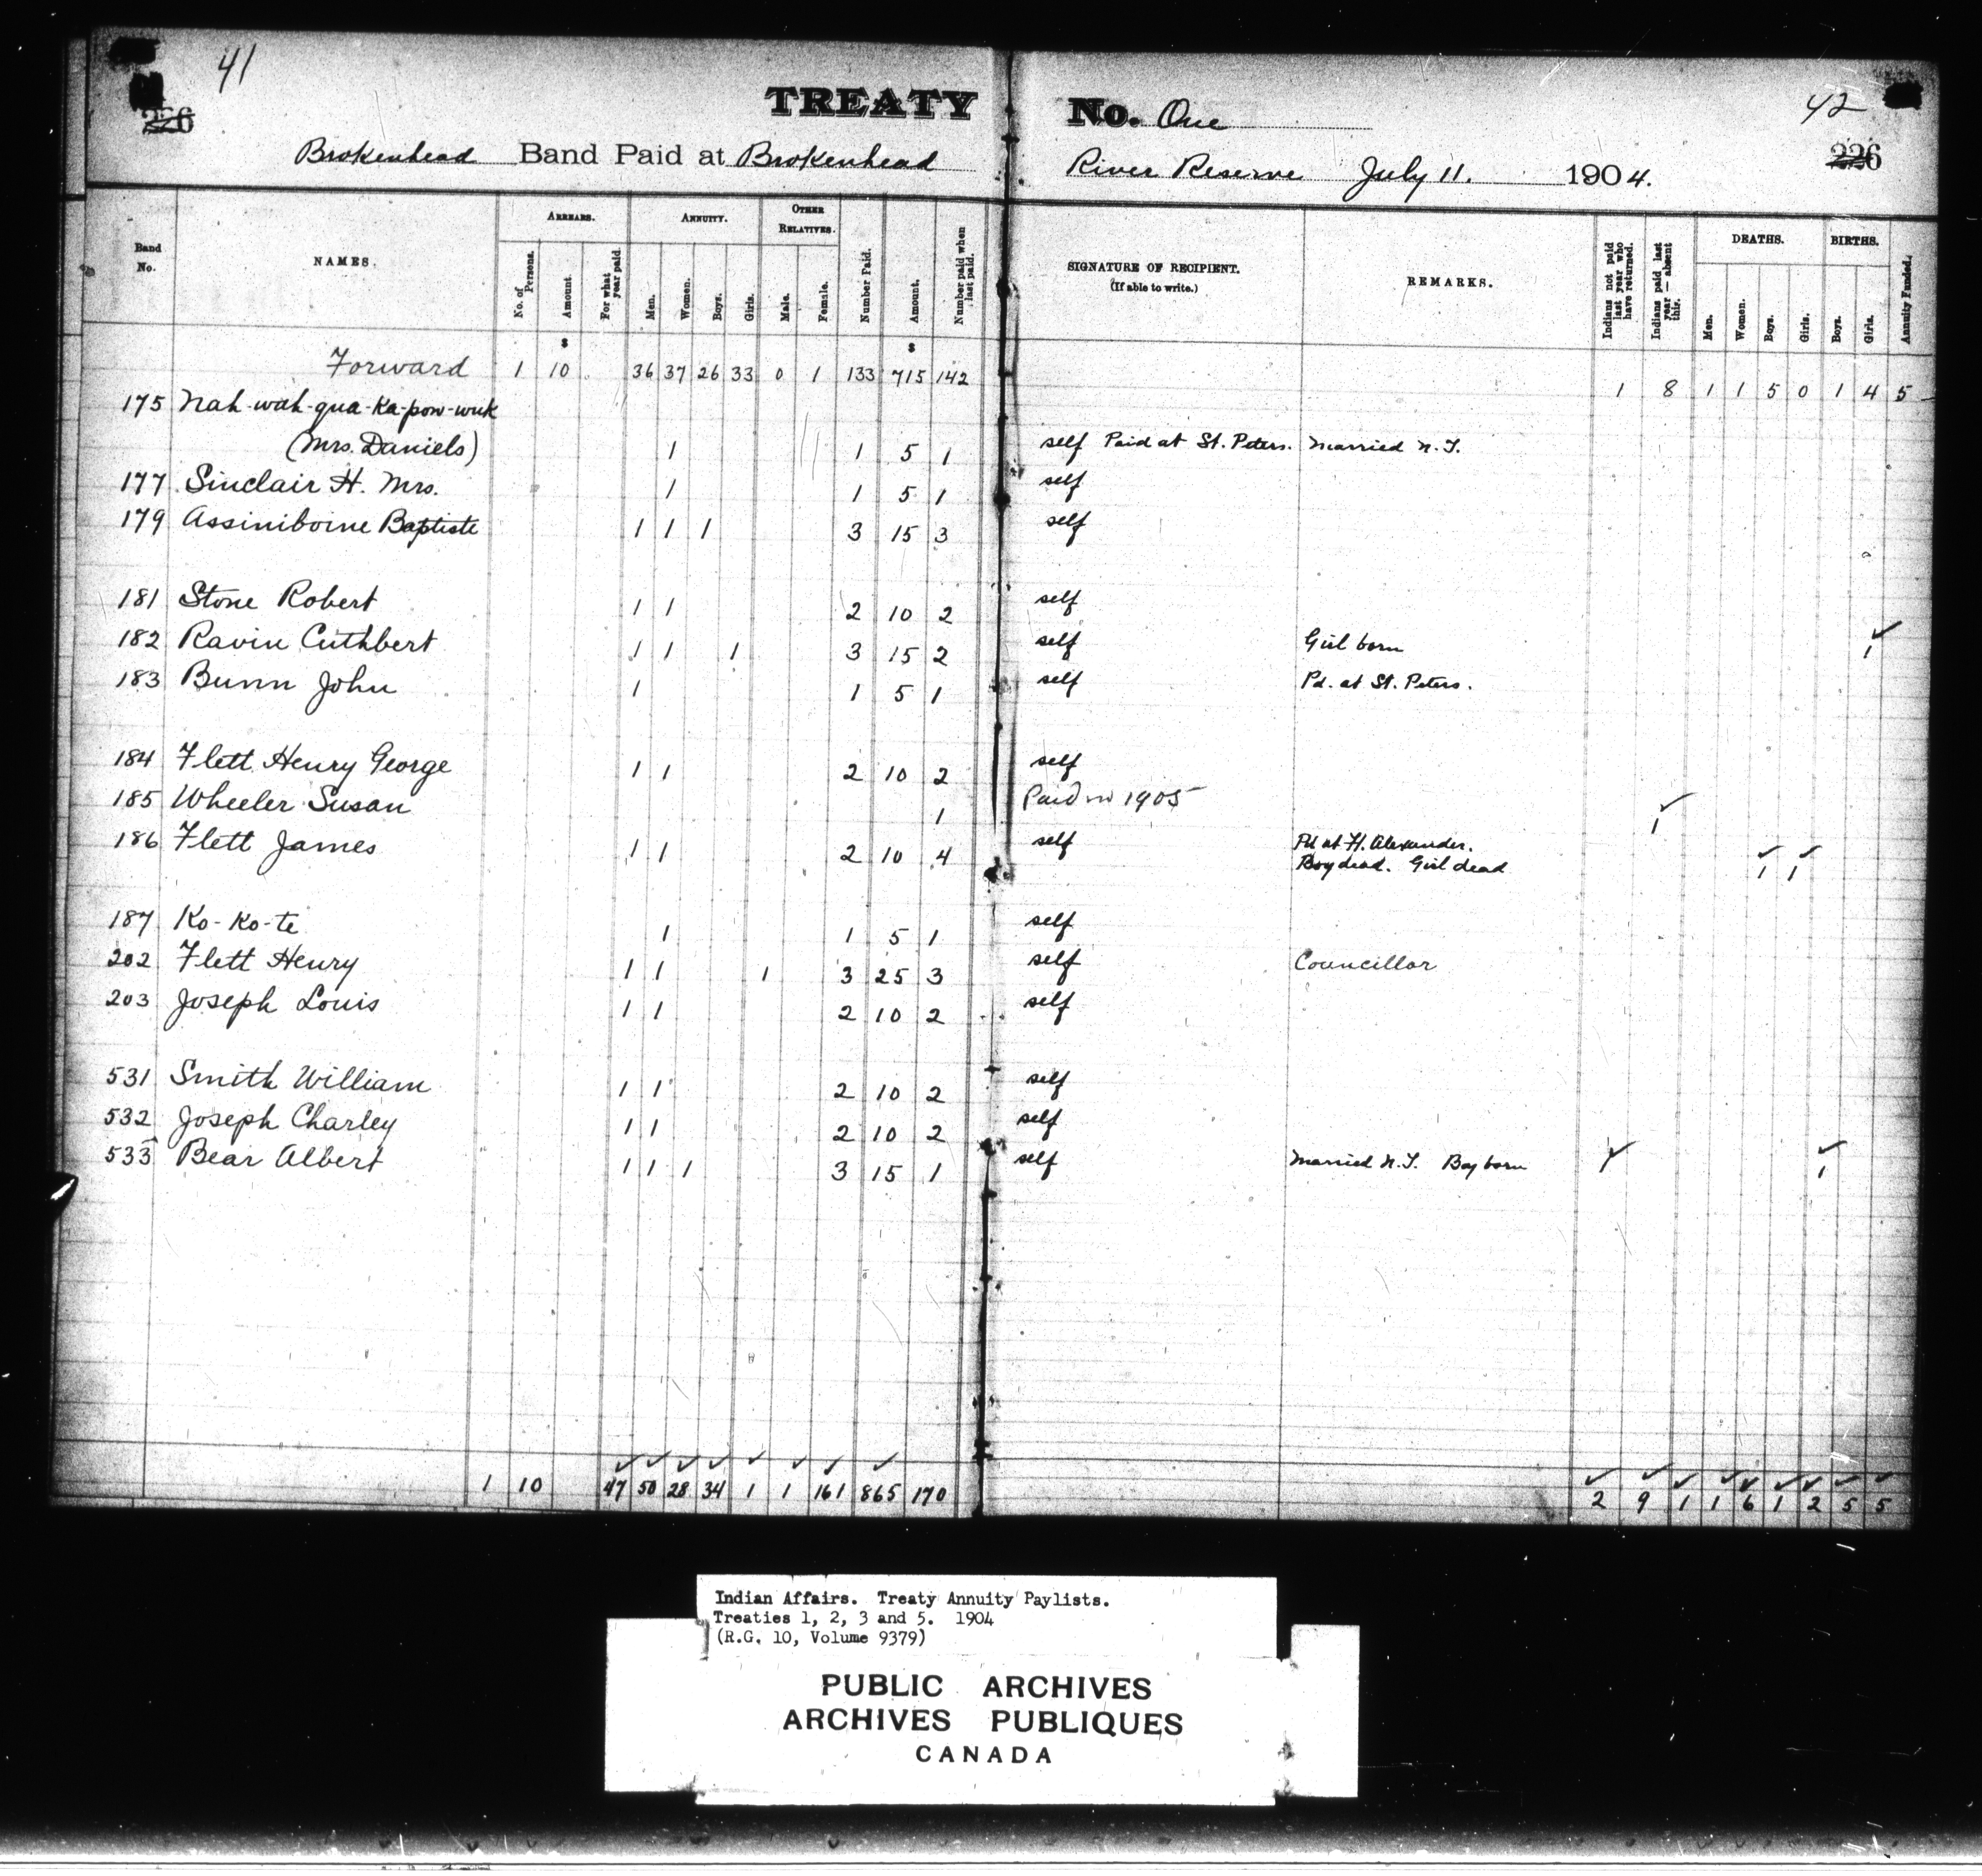 41
TREATY No. One
42
226
226
Brokenhead Band Paid at Brokenhead River Reserve July 11. 1904.
Band No.
NAMES.
ARREARS.
No. of Persons.
Amount.
For what year paid.
ANNUITY.
Men.
Women.
Boys.
Girls.
OTHER RELATIVES.
Male.
Female.
Number Paid.
Amount.
Number paid when last paid.
SIGNATURE OF RECIPIENT.
(If able to write.)
REMARKS.
Indians not paid last year who have returned.
Indians paid last year — absent this.
DEATHS.
Men.
Women.
Boys.
Girls.
BIRTHS.
Boys.
Girls.
Annuity Funded.
$ $
Forward 1 10 36 37 26 33 0 1 133 715 142 1 8 1 1 5 0 1 4 5
175 Nah-wah-qua-ka-pow-wuk
(Mrs. Daniels) 1 1 5 1 self Paid at St. Peters. Married N.T.
177 Sinclair H. Mrs. 1 1 5 1 self
179 Assiniboine Baptiste 1 1 1 3 15 3 self
181 Stone Robert 1 1 2 10 2 self
182 Ravin Cuthbert 1 1 1 3 15 2 self Girl born 1
183 Bunn John 1 1 5 1 self Pd. at St. Peters.
184 Flett Henry George 1 1 2 10 2 self
185 Wheeler Susan 1 Paid in 1905 1
186 Flett James 1 1 2 10 4 self Pd at Ft. Alexander.
Boy dead. Girl dead 1 1
187 Ko-Ko-te 1 1 5 1 self
202 Flett Henry 1 1 1 3 25 3 self Councillor
203 Joseph Louis 1 1 2 10 2 self
531 Smith William 1 1 2 10 2 self
532 Joseph Charley 1 1 2 10 2 self
533 Bear Albert 1 1 1 3 15 1 self Married N.T. Boy born 1 1
1 10 47 50 28 34 1 1 161 865 170 2 9 1 1 6 1 2 5 5
Indian Affairs. Treaty Annuity Paylists.
Treaties 1, 2, 3 and 5. 1904
(R.G. 10, Volume 9379)
PUBLIC ARCHIVES
ARCHIVES PUBLIQUES
CANADA